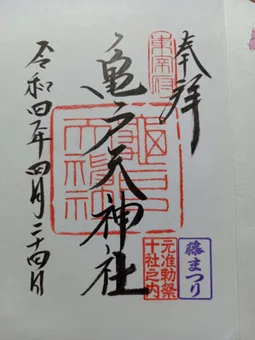 奉拝
東宰府
亀戸天神社
亀戸天神社
令和四年四月二十四日
元准勅祭
十社之内
藤まつり